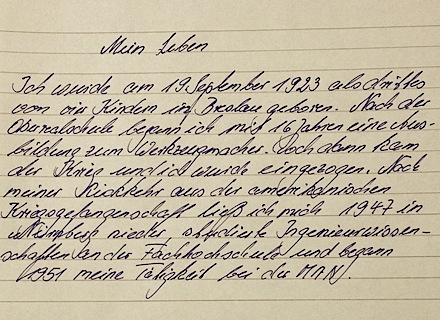 Mein Leben
Ich wurde am 19. September 1923 als drittes
von vier Kindern in Breslau geboren. Nach der
Oberrealschule begann ich mit 16 Jahren eine Aus-
bildung zum Werkzeugmacher. Doch dann kam
der Krieg und ich wurde eingezogen. Nach
meiner Rückkehr aus der amerikanischen
Kriegsgefangenschaft ließ ich mich 1947 in
Nürnberg nieder, studierte Ingenieurwissen-
schaften an der Fachhochschule und begann
1951 meine Tätigkeit bei der MAN.